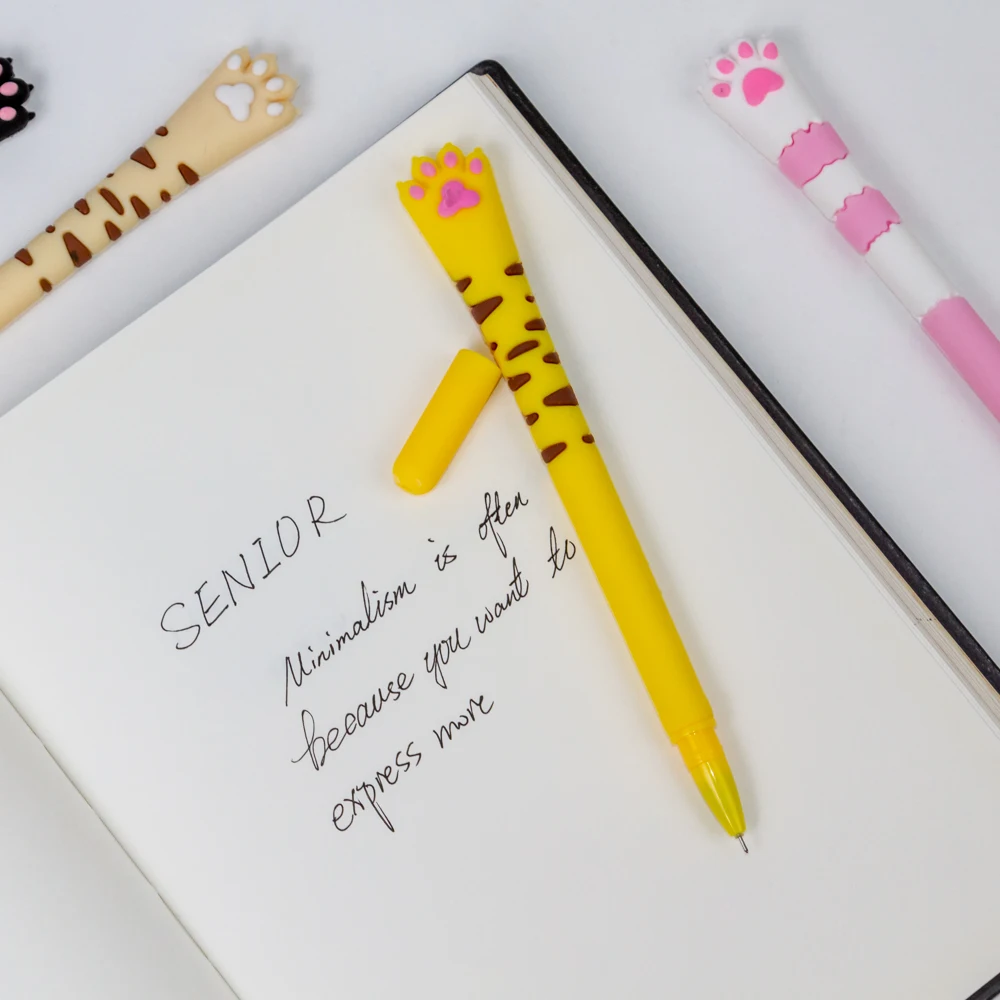 SENIOR
Minimalism is often
because you want to
express more